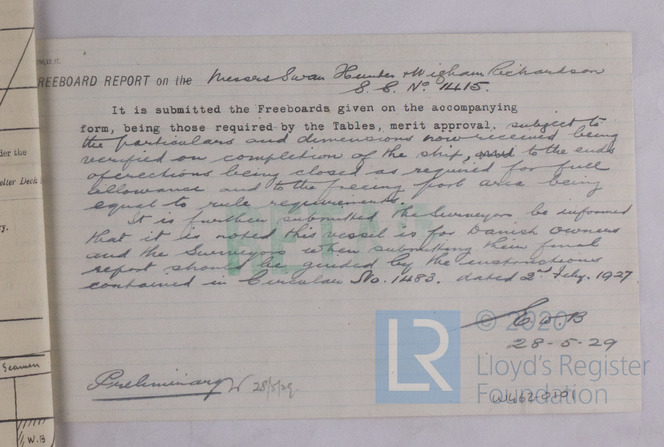 REEBOARD REPORT on the Messrs Swan Hunter & Wigham Richardson
S.S. No. 1415.
It is submitted the Freeboards given on the accompanying
form, being those required by the Tables, merit approval, subject to
the particulars and dimensions now received being
verified on completion of the ship, and to the ends
of erections being closed as required for full
allowance and to the freeing port area being
equal to rule requirements.
It is further submitted the Surveyors be informed
that it is noted this vessel is for Danish owners
and the Surveyors when submitting their final
report should be guided by the instructions
contained in Circular No. 1483. dated 2nd Feby. 1927
28-5-29
Preliminary 28/5/29
RETAIN
© 2020
LR
Lloyd's Register
Foundation
der the
elter Deck
Seamen
W.B